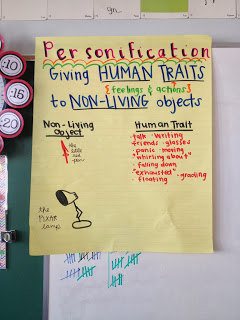 Personification
Giving HUMAN TRAITS
{feelings & actions}
to NON-LIVING objects
Non-Living
Object
the
little
red
pen
the
PIXAR
lamp
Human Trait
·talk ·writing
·friends ·glasses
·panic ·moving
·"whirling about"
·falling down
·"exhausted" ·grading
·floating
:10
:15
:20